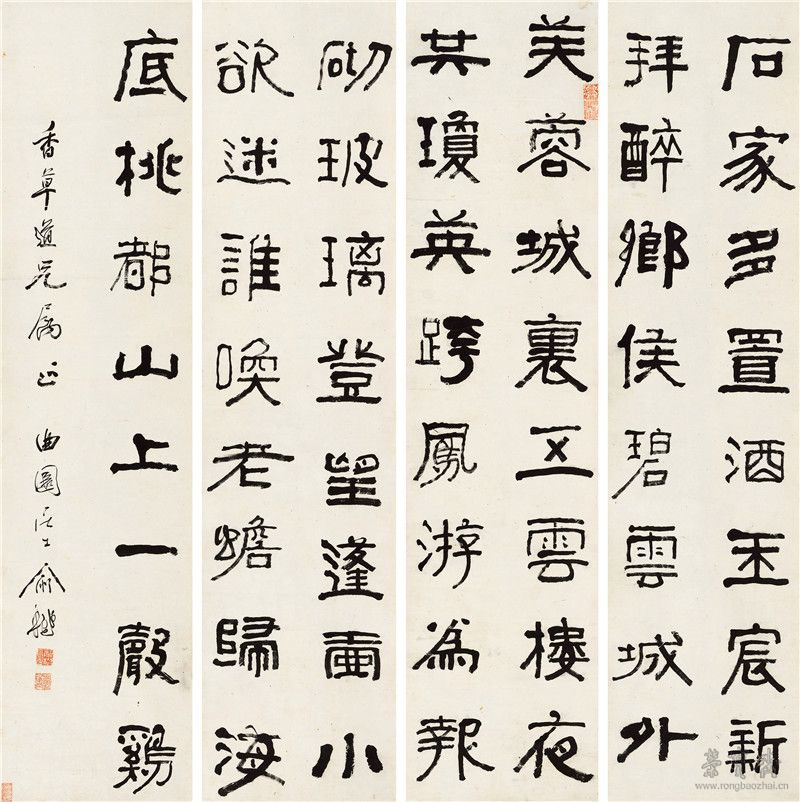 石家多置酒玉宸新
拜醉鄉侯碧雲城外
芙蓉城裏五雲樓夜
共瓊英跨鳳游為報
砌玻璃登望蓬壺小
欲迷誰喚老蟾歸海
底桃都山上一聲鷄
香草道兄屬正 曲園居士俞樾
榮寶齋
www.rongbaozhai.cn